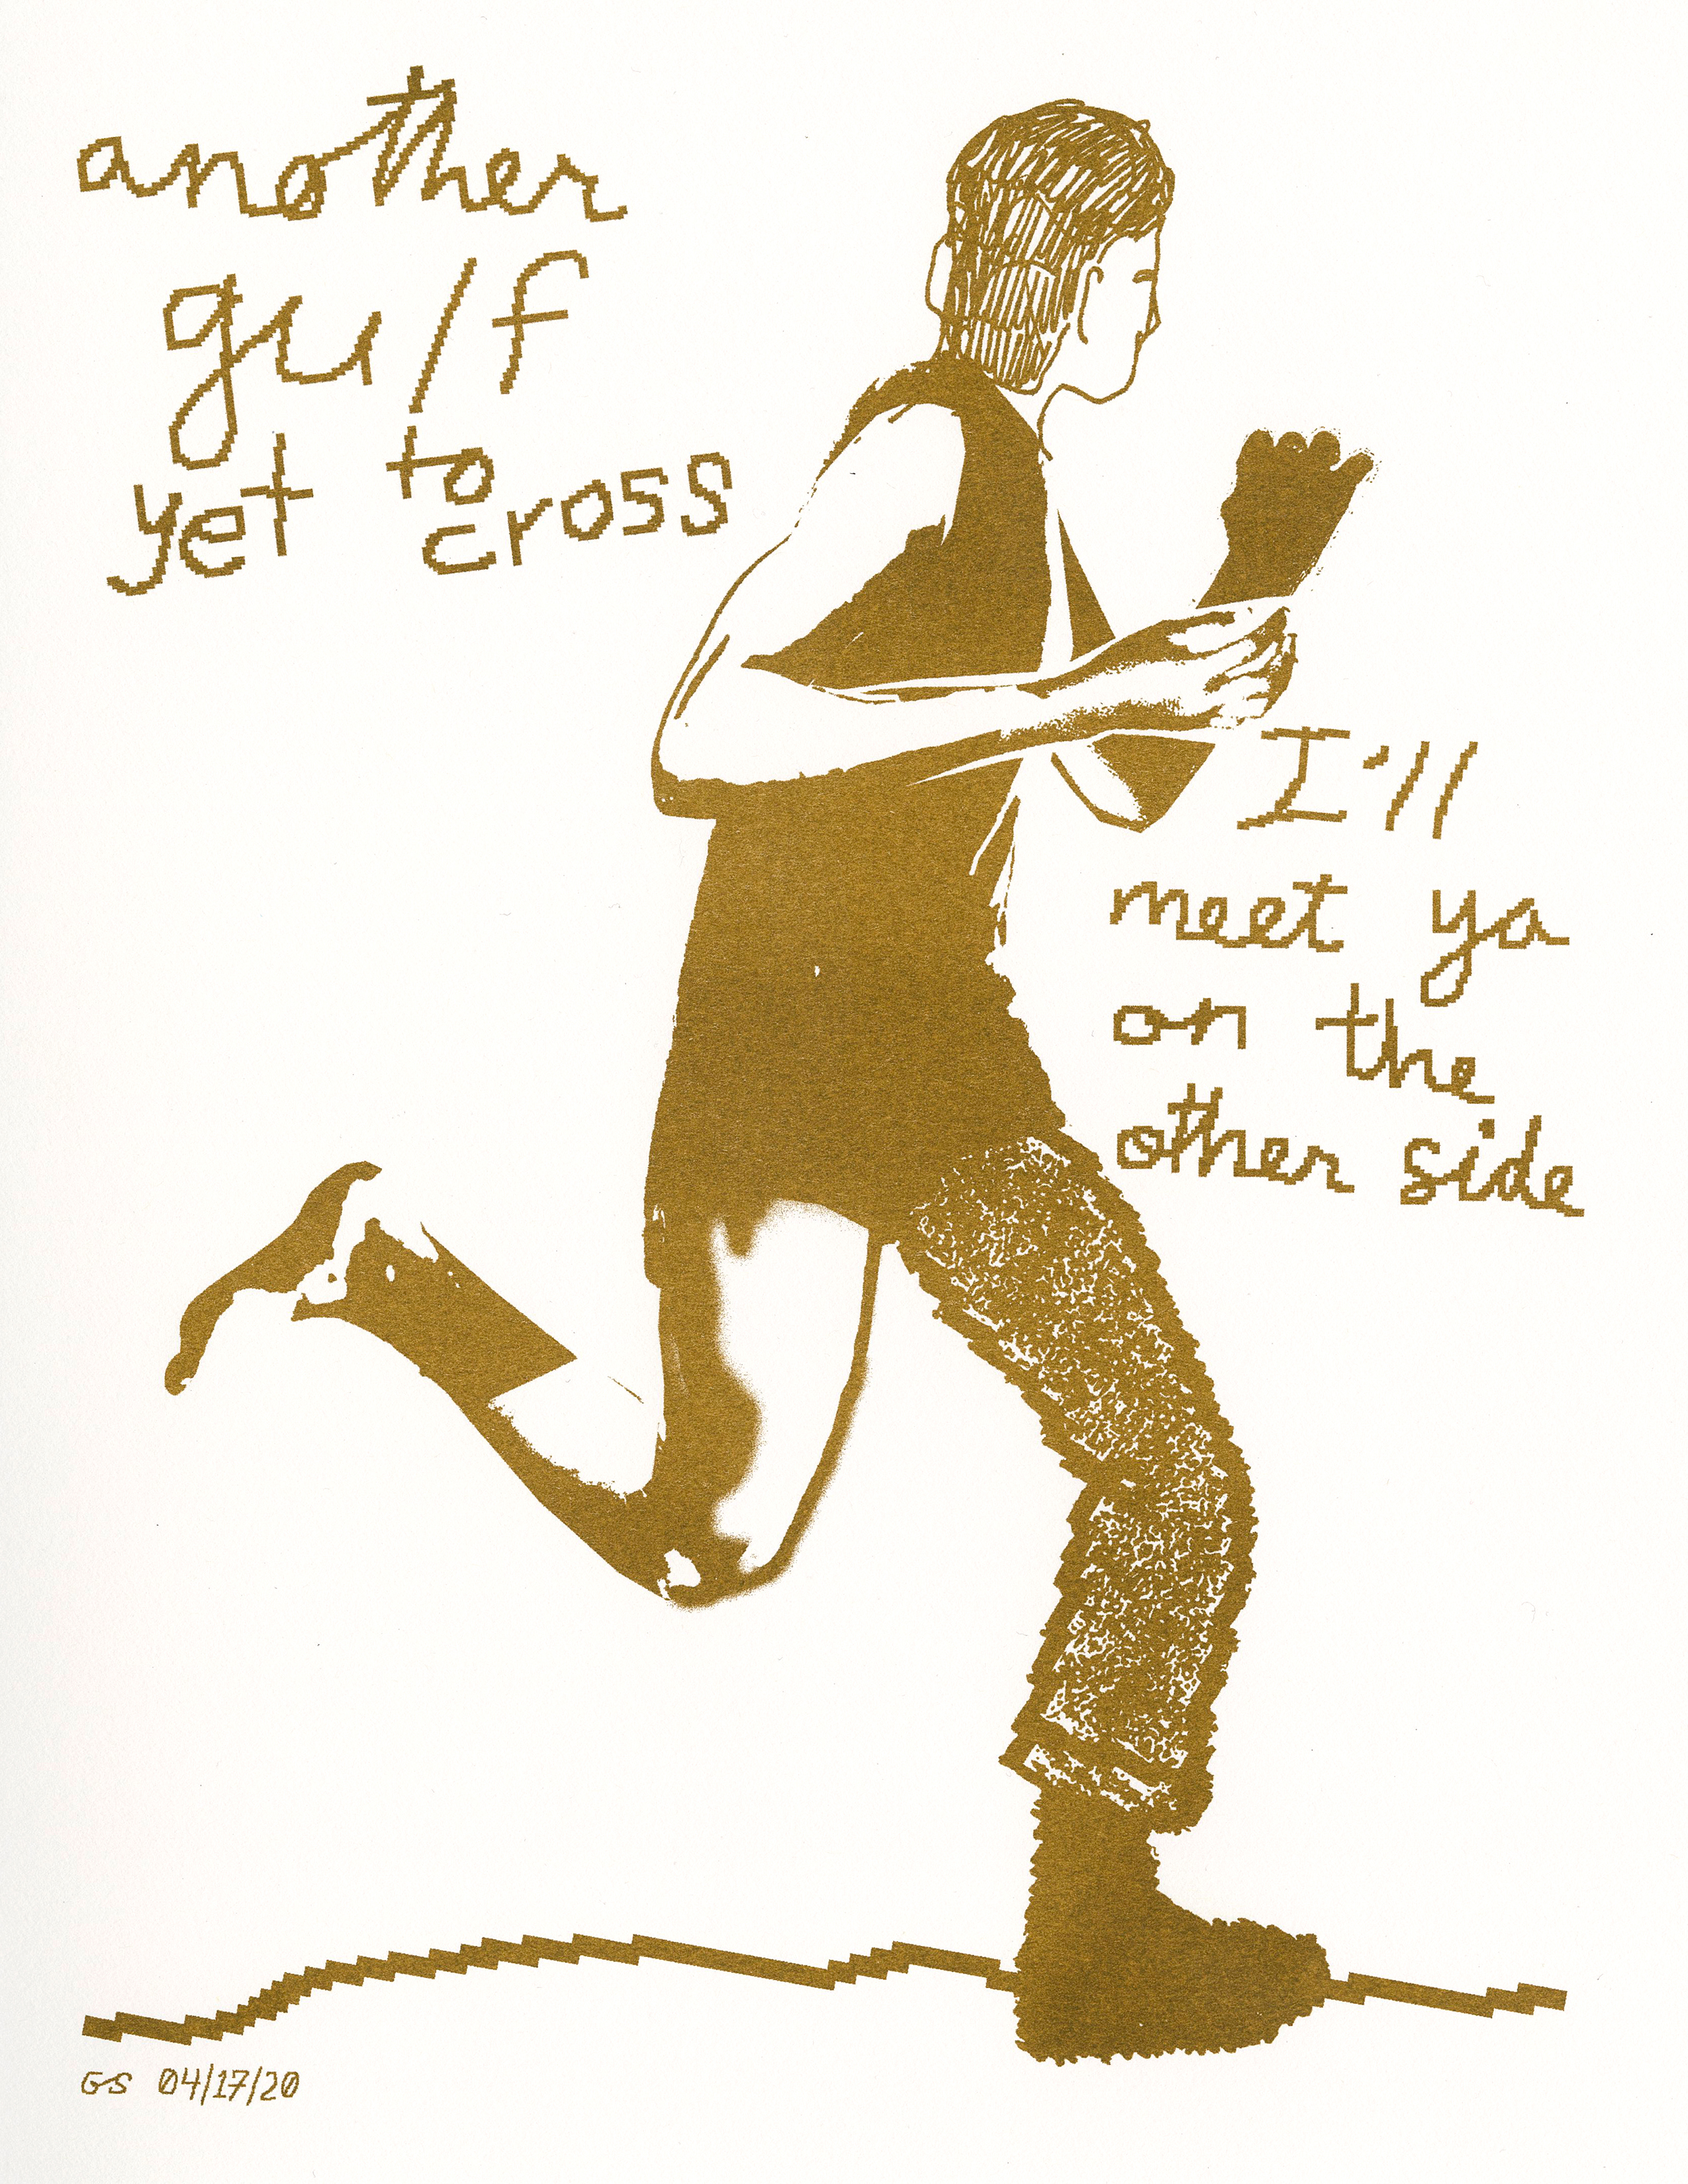 another
gulf
yet to
cross
I'll
meet ya
on the
other side
GS 04/17/20